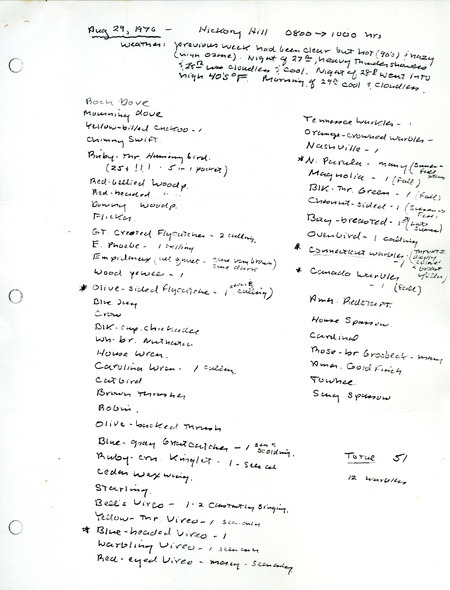 Aug 29, 1976 - Hickory Hill 0800 → 1000 hrs
Weather: previous week had been clear but hot (90's) & hazy
(high ozone). Night of 27th, heavy thundershowers
& 28th was cloudless & cool. Night of 28th went into
high 40's°F Morning of 29th cool & cloudless.
Rock Dove
Mourning dove
Yellow-billed cuckoo - 1
Chimney Swift
Ruby-thr. Hummingbird.
(25± !!! - 5 in 1 pocket)
Red-bellied Woodp.
Red-headed "
Downy Woodp.
Flicker
GT Crested Flycatcher - 2 calling
E. Phoebe - 1 calling
Empidonax (all quiet - some brown
some
Wood pewee - 1
* Olive-sided Flycatcher - 1 calling)
Blue Jay
Crow
Blk-cap. chickadee
Wh-br. Nuthatch
House Wren
Carolina Wren - 1 calling
Catbird
Brown Thrasher
Robin
Olive-backed Thrush
Blue-gray Gnatcatcher - 1 seen & scolding
Ruby-crn. Kinglet - 1 - seen
Cedar Waxwing
Starling
Bell's Vireo - 1-2 constantly singing.
Yellow-thr. Vireo - 1 seen only
* Blue-headed Vireo - 1
Warbling Vireo - 1 seen only
Red-eyed Vireo - many - seen only
Tennessee Warbler - 1
Orange-crowned Warbler -
Nashville - 1
* N. Parula - many
Magnolia - 1 (Fall)
Blk-thr. Green - 1 (Fall)
Chestnut-sided - 1
Bay-breasted - 1
Ovenbird - 1 calling
* Connecticut Warbler - 1
* Canada Warbler
- 1 (Fall)
Amer. Redstart
House Sparrow
Cardinal
Rose-br Grosbeck - many
Amer. Goldfinch
Towhee
Song Sparrow
Total 51
12 Warblers